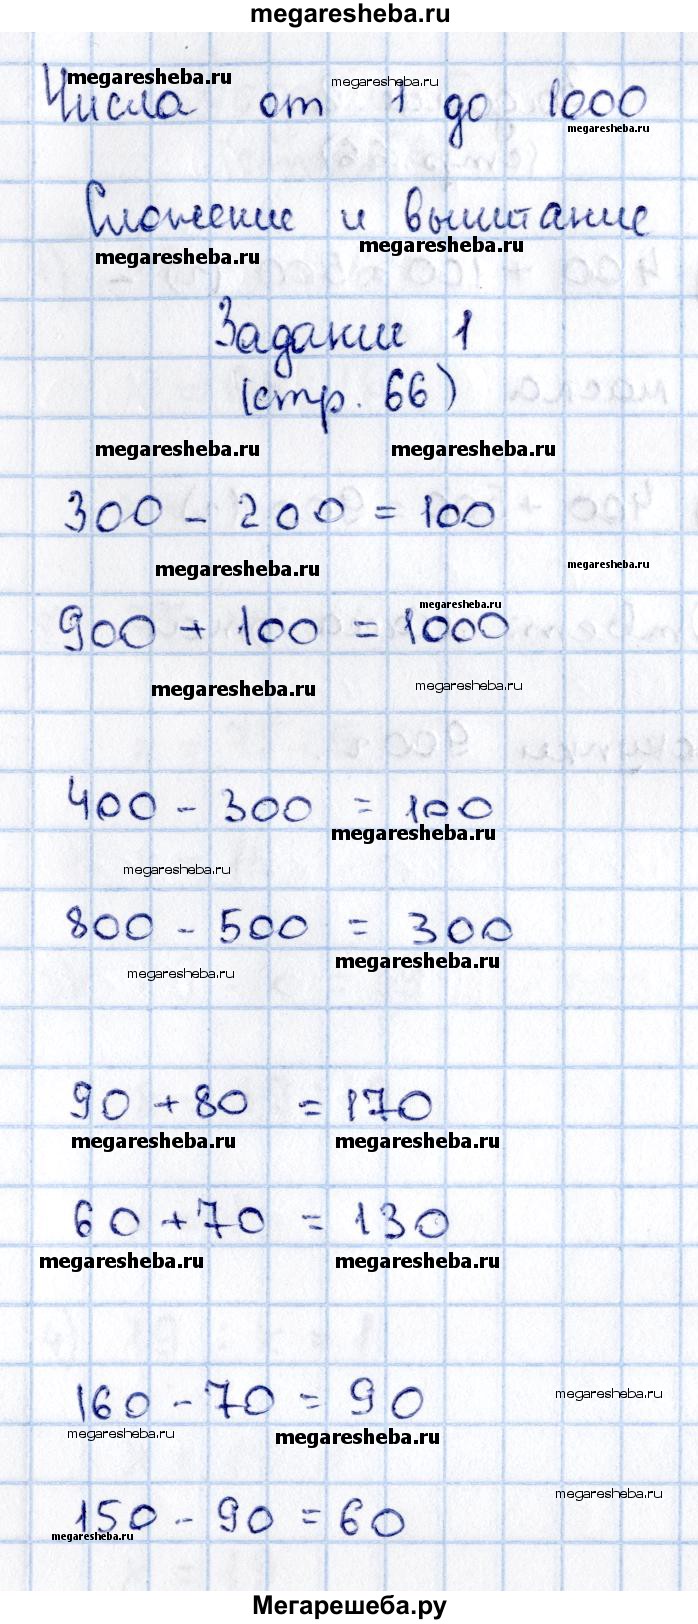 megaresheba.ru
Числа от 1 до 1000
megaresheba.ru megaresheba.ru megaresheba.ru
Сложение и вычитание
megaresheba.ru megaresheba.ru
Задание 1
(стр. 66)
megaresheba.ru megaresheba.ru
300 - 200 = 100
megaresheba.ru megaresheba.ru
megaresheba.ru
900 + 100 = 1000
megaresheba.ru megaresheba.ru
400 - 300 = 100
megaresheba.ru
megaresheba.ru
800 - 500 = 300
megaresheba.ru
megaresheba.ru
90 + 80 = 170
megaresheba.ru megaresheba.ru
60 + 70 = 130
megaresheba.ru megaresheba.ru
160 - 70 = 90
megaresheba.ru
megaresheba.ru megaresheba.ru
megaresheba.ru
150 - 90 = 60
megaresheba.ru
Мегарешеба.ру